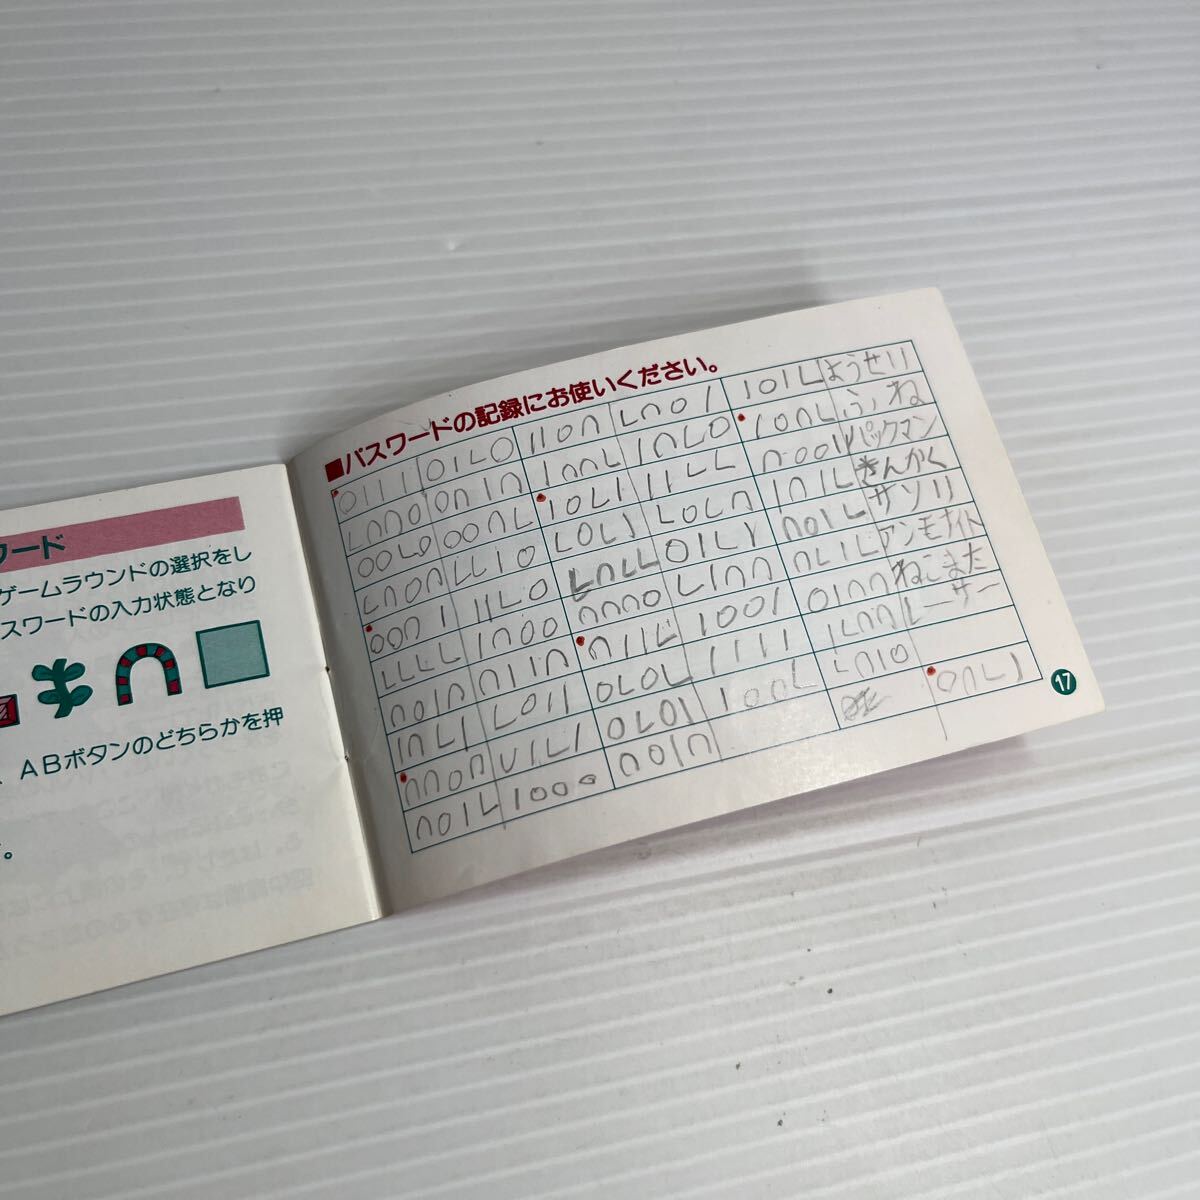 ワード
ゲームラウンドの選択をし
スワードの入力状態となり
ABボタンのどちらかを押
す。
■パスワードの記録にお使いください。
0111 01L0 110∩ L∩01 101L ようせい
L∩∩0 0∩1∩ 1∩∩L 1∩L0 10∩L ふね
00L0 00∩L 10L1 11LL ∩001 パックマン
L0∩∩ LL10 L0L1 L0L∩ 1∩1L きんかく
00∩1 11L0 L∩LL 01L1 ∩01L サソリ
LLLL 1∩00 ∩∩∩0 L1∩∩ ∩L1L アンモナイト
∩01∩ ∩11∩ ∩11L 1001 01∩∩ ねこまた
1∩L1 L011 0L0L 1111 1L∩∩ レーザー
∩∩0∩ ∩1L1 0L01 100L L∩10
∩01L 1000 ∩01∩ 0∩L1
17